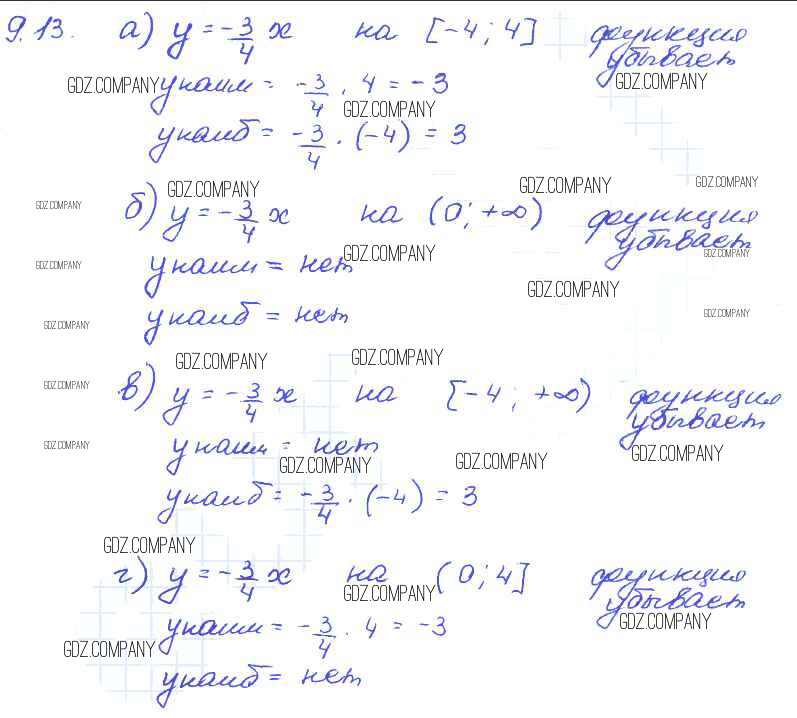 9.13. а) y = -3/4 x на [-4; 4] функция убывает
GDZ.COMPANY yнаим = -3/4 · 4 = -3 GDZ.COMPANY
GDZ.COMPANY
yнаиб = -3/4 · (-4) = 3
GDZ.COMPANY GDZ.COMPANY GDZ.COMPANY
GDZ.COMPANY б) y = -3/4 x на (0; +∞) функция убывает
GDZ.COMPANY yнаим = нет GDZ.COMPANY GDZ.COMPANY
GDZ.COMPANY
yнаиб = нет GDZ.COMPANY
GDZ.COMPANY
GDZ.COMPANY GDZ.COMPANY
GDZ.COMPANY в) y = -3/4 x на [-4; +∞) функция убывает
GDZ.COMPANY yнаим = нет GDZ.COMPANY
GDZ.COMPANY GDZ.COMPANY
yнаиб = -3/4 · (-4) = 3
GDZ.COMPANY
г) y = -3/4 x на (0; 4] функция убывает
GDZ.COMPANY GDZ.COMPANY
yнаим = -3/4 · 4 = -3
GDZ.COMPANY
yнаиб = нет